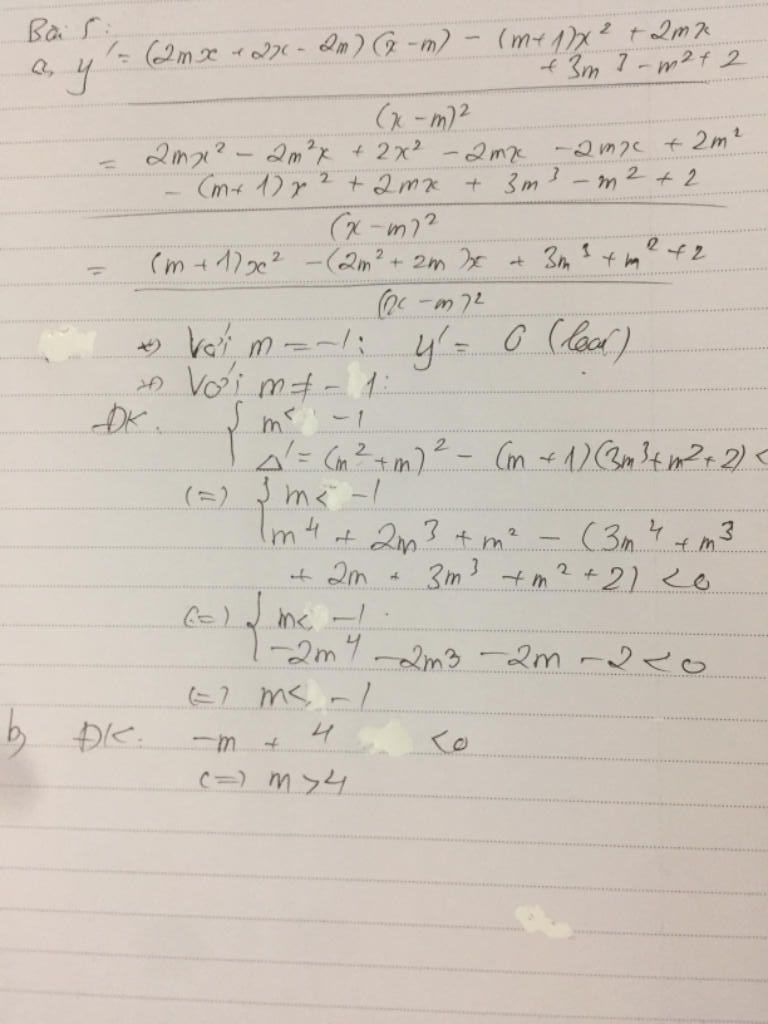 Bài 5:
a, y' = (2mx + 2x - 2m)(x - m) - (m+1)x² + 2mx
+ 3m³ - m² + 2
(x - m)²
= 2mx² - 2m²x + 2x² - 2mx - 2mx + 2m²
- (m+1)x² + 2mx + 3m³ - m² + 2
(x - m)²
= (m+1)x² - (2m² + 2m)x + 3m³ + m² + 2
(x - m)²
*) Với m = -1: y' = 0 (loại)
*) Với m ≠ -1:
ĐK. { m < -1
Δ' = (m² + m)² - (m+1)(3m³ + m² + 2) <
(=) { m < -1
m⁴ + 2m³ + m² - (3m⁴ + m³
+ 2m + 3m³ + m² + 2) < 0
(=) { m < -1
-2m⁴ - 2m³ - 2m - 2 < 0
(=) m < -1
b) ĐK: -m + 4 < 0
(=) m > 4